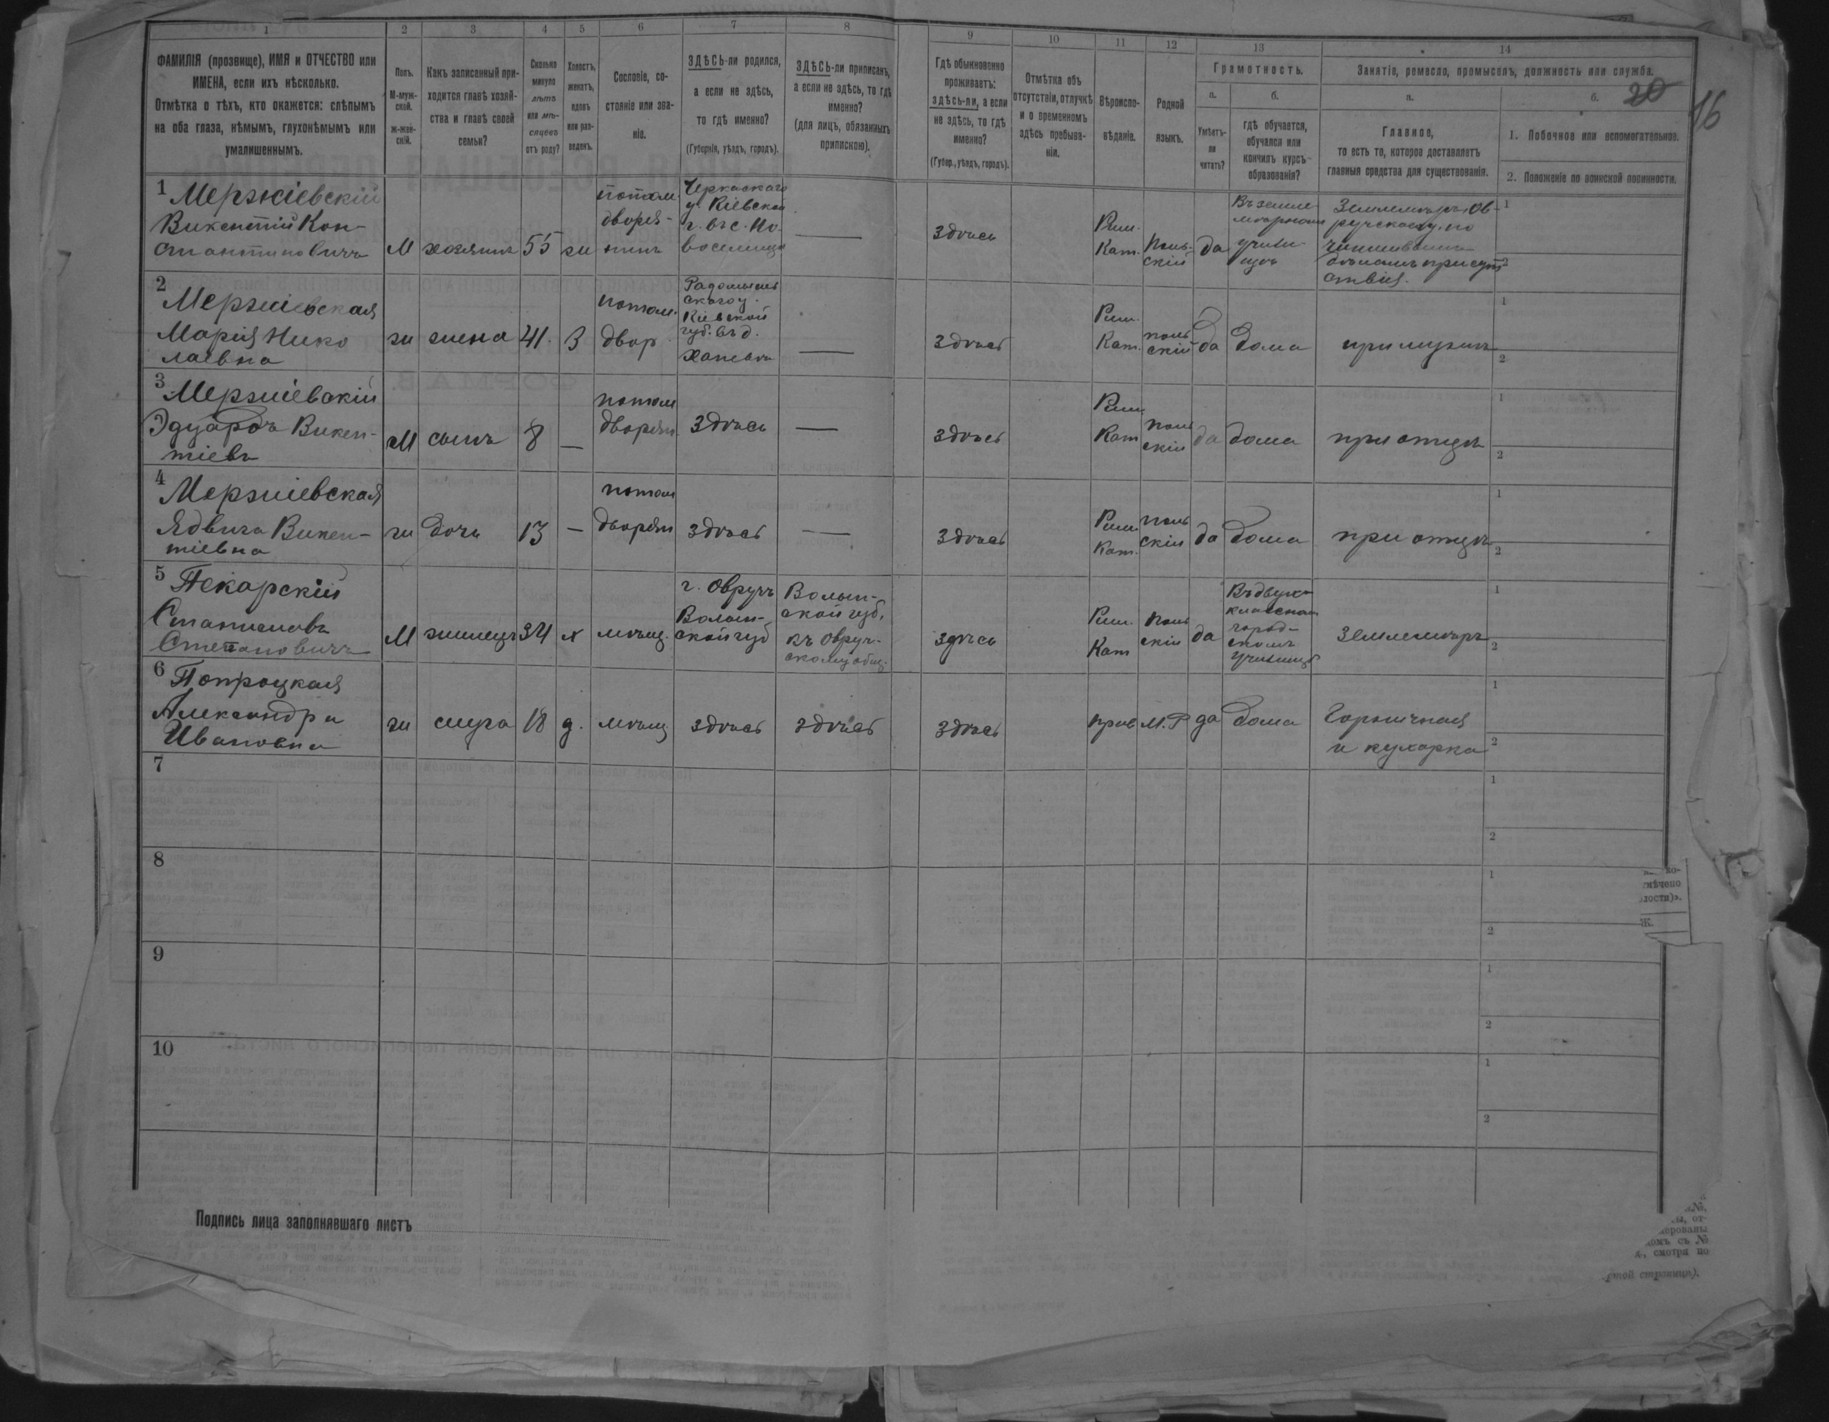 1 2 3 4 5 6 7 8 9 10 11 12 13 14
ФАМИЛІЯ (прозвище), ИМЯ и ОТЧЕСТВО или
ИМЕНА, если ихъ нѣсколько.
Отмѣтка о тѣхъ, кто окажется: слѣпымъ
на оба глаза, нѣмымъ, глухонѣмымъ или
умалишеннымъ.
Полъ.
М-муж-
ской.
Ж-жен-
скій.
Какъ записанный при-
ходится главѣ хозяй-
ства и главѣ своей
семьи?
Сколько
минуло
лѣтъ
или мѣ-
сяцевъ
отъ роду?
Холостъ,
женатъ,
вдовъ
или раз-
веденъ.
Сословіе, со-
стояніе или зва-
ніе.
ЗДѢСЬ-ли родился,
а если не здѣсь,
то гдѣ именно?
(Губернія, уѣздъ, городъ).
ЗДѢСЬ-ли приписанъ,
а если не здѣсь, то гдѣ
именно?
(для лицъ, обязанныхъ
припискою).
Гдѣ обыкновенно
проживаетъ:
здѣсь-ли, а если
не здѣсь, то гдѣ
именно?
(Губер., уѣздъ, городъ).
Отмѣтка объ
отсутствіи, отлучкѣ
и о временномъ
здѣсь пребыва-
ніи.
Вѣроиспо-
вѣданіе.
Родной
языкъ.
Грамотность.
а.
Умѣетъ-
ли
читать?
б.
гдѣ обучается,
обучался или
кончилъ курсъ
образованія?
Занятіе, ремесло, промыселъ, должность или служба.
а.
Главное,
то есть то, которое доставляетъ
главныя средства для существованія.
б.
1. Побочное или вспомогательное.
2. Положеніе по воинской повинности.
20
16
1 Мержіевскій
Викентій Кон-
стантиновичъ
М хозяинъ 55 ж
потом.
дворя-
нинъ
Черкаскаго
у. Кіевской
г. въ с. Но-
воселица
здѣсь
Рим.
Кат.
Поль-
скій
да
Въ земле
мѣрномъ
учили
щѣ
Землемѣръ Ов-
ручскаго, по
чиншевымъ
дѣламъ присут
ствія.
1
2
2
Мержіевская
Марія Нико
лаевна
ж жена 41. З
потом.
двор.
Радомысль
скаго у.
Кіевской
губ. въ д.
здѣсь
Рим.
Кат.
поль
скій
да дома при мужѣ
1
2
3
Мержіевскій
Эдуардъ Викен-
тіевъ
М сынъ 8 —
потом
дворян
здѣсь —
здѣсь
Рим
Кат
поль
скій
да дома при отцѣ
1
2
4
Мержіевская
Ядвига Викен-
тіевна
ж дочь 13 —
потом
дворян
здѣсь —
здѣсь
Рим
Кат.
поль
скій
да дома при отцѣ
1
2
5
Пекарскій
Станиславъ
Степановичъ
М жилецъ 34 х мѣщ.
г. Овручъ
Волын-
ской губ
Волын-
ской губ.
къ Овруч-
скому общ.
здѣсь
Рим.
Кат
Поль
скій
да
Въ двухъ
классномъ
город-
скомъ
училищѣ
землемѣръ
1
2
6
Попроцкая
Александра
Ивановна
ж слуга 18 д. мѣщ здѣсь здѣсь
здѣсь
прав М.Р да дома
Горничная
и кухарка
1
2
7
1
2
8
1
2
9
1
2
10
1
2
Подпись лица заполнявшаго листъ
мѣчено
лости)».
№,
от-
ерованы
съ №
смотри по
той страницѣ).